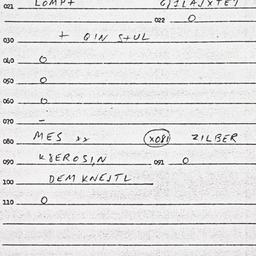 021 LOMPT
022 O
030 + QIN S+UL
040 O
050 O
060 O
070 -
080 MES xx X081 ZILBER
090 K8EROSIN 091 O
100 DEMKNEJTL
110 O